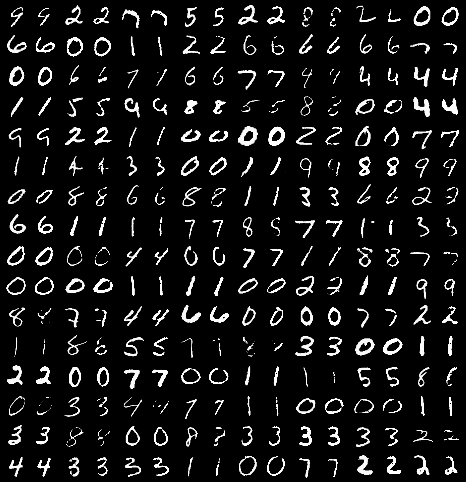 9 9 2 2 7 7 5 5 2 2 8 8 2 2 0 0
6 6 0 0 1 1 2 2 6 6 6 6 6 6 7 7
0 0 6 6 7 7 6 6 7 7 4 4 4 4 4 4
1 1 5 5 9 9 8 8 5 5 8 8 0 0 4 4
9 9 2 2 1 1 0 0 0 0 2 2 0 0 7 7
1 1 4 4 3 3 0 0 1 1 9 9 8 8 9 9
0 0 8 8 6 6 8 8 1 1 3 3 6 6 2 2
6 6 1 1 1 1 7 7 8 8 7 7 1 1 3 3
0 0 0 0 4 4 0 0 7 7 1 1 8 8 7 7
0 0 0 0 1 1 1 1 0 0 2 2 1 1 9 9
8 8 7 7 4 4 6 6 0 0 0 0 7 7 2 2
1 1 8 8 5 5 7 7 8 3 3 0 0 1 1
2 2 0 0 7 7 0 0 1 1 1 1 5 5 8 8
0 0 3 3 4 4 7 7 1 1 0 0 0 0 1 1
3 3 8 8 0 0 8 8 3 3 3 3 3 3 2 2
4 4 3 3 3 3 1 1 0 0 7 7 2 2 2 2